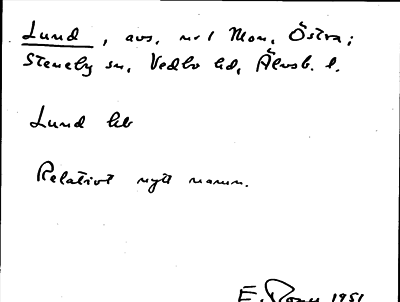 Lund, avs. nr 1 Mon. Östra;
Steneby sn, Vedbo hd, Älvsb. l.
Lund lb
Relativt nytt namn.
E. 1951